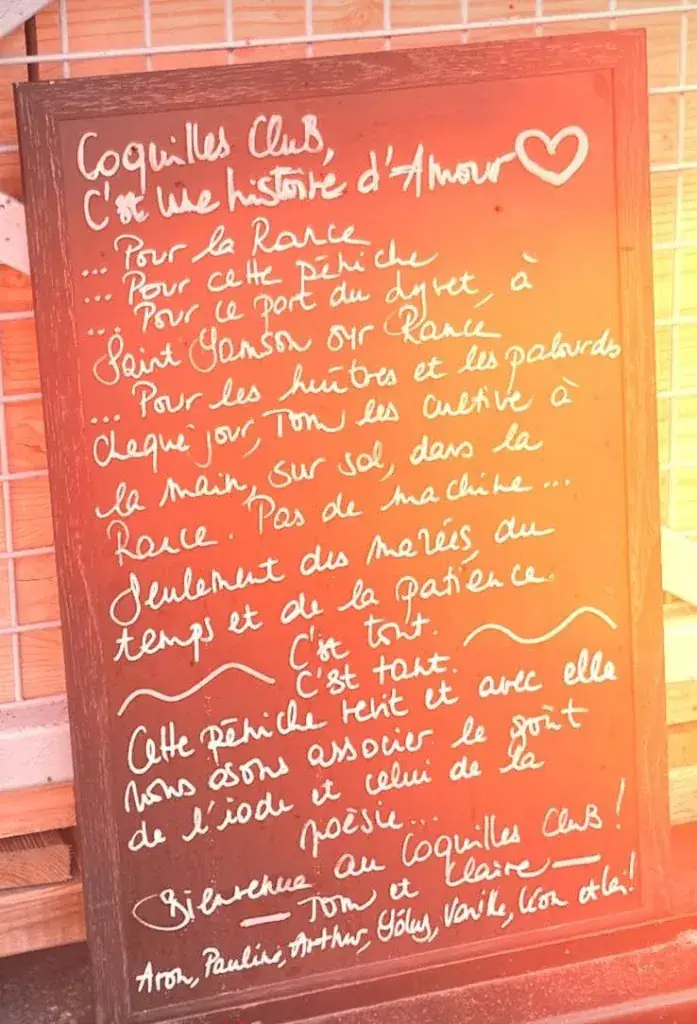 Coquilles Club,
C'est une histoire d'Amour
... Pour la Rance
... Pour cette péniche
... Pour ce port du Lyvet, à
Saint Samson sur Rance
... Pour les huîtres et les palourdes
chaque jour, Tom les cultive à
la main, sur sol, dans la
Rance. Pas de machine...
Seulement des marées, du
temps et de la patience.
C'est tout.
C'est tant.
Cette péniche revit et avec elle
nous osons associer le goût
de l'iode et celui de la
poèsie...
Bienvenue au Coquilles Club!
Tom et Claire
Aron, Pauline, Arthur, Vanille, Léon